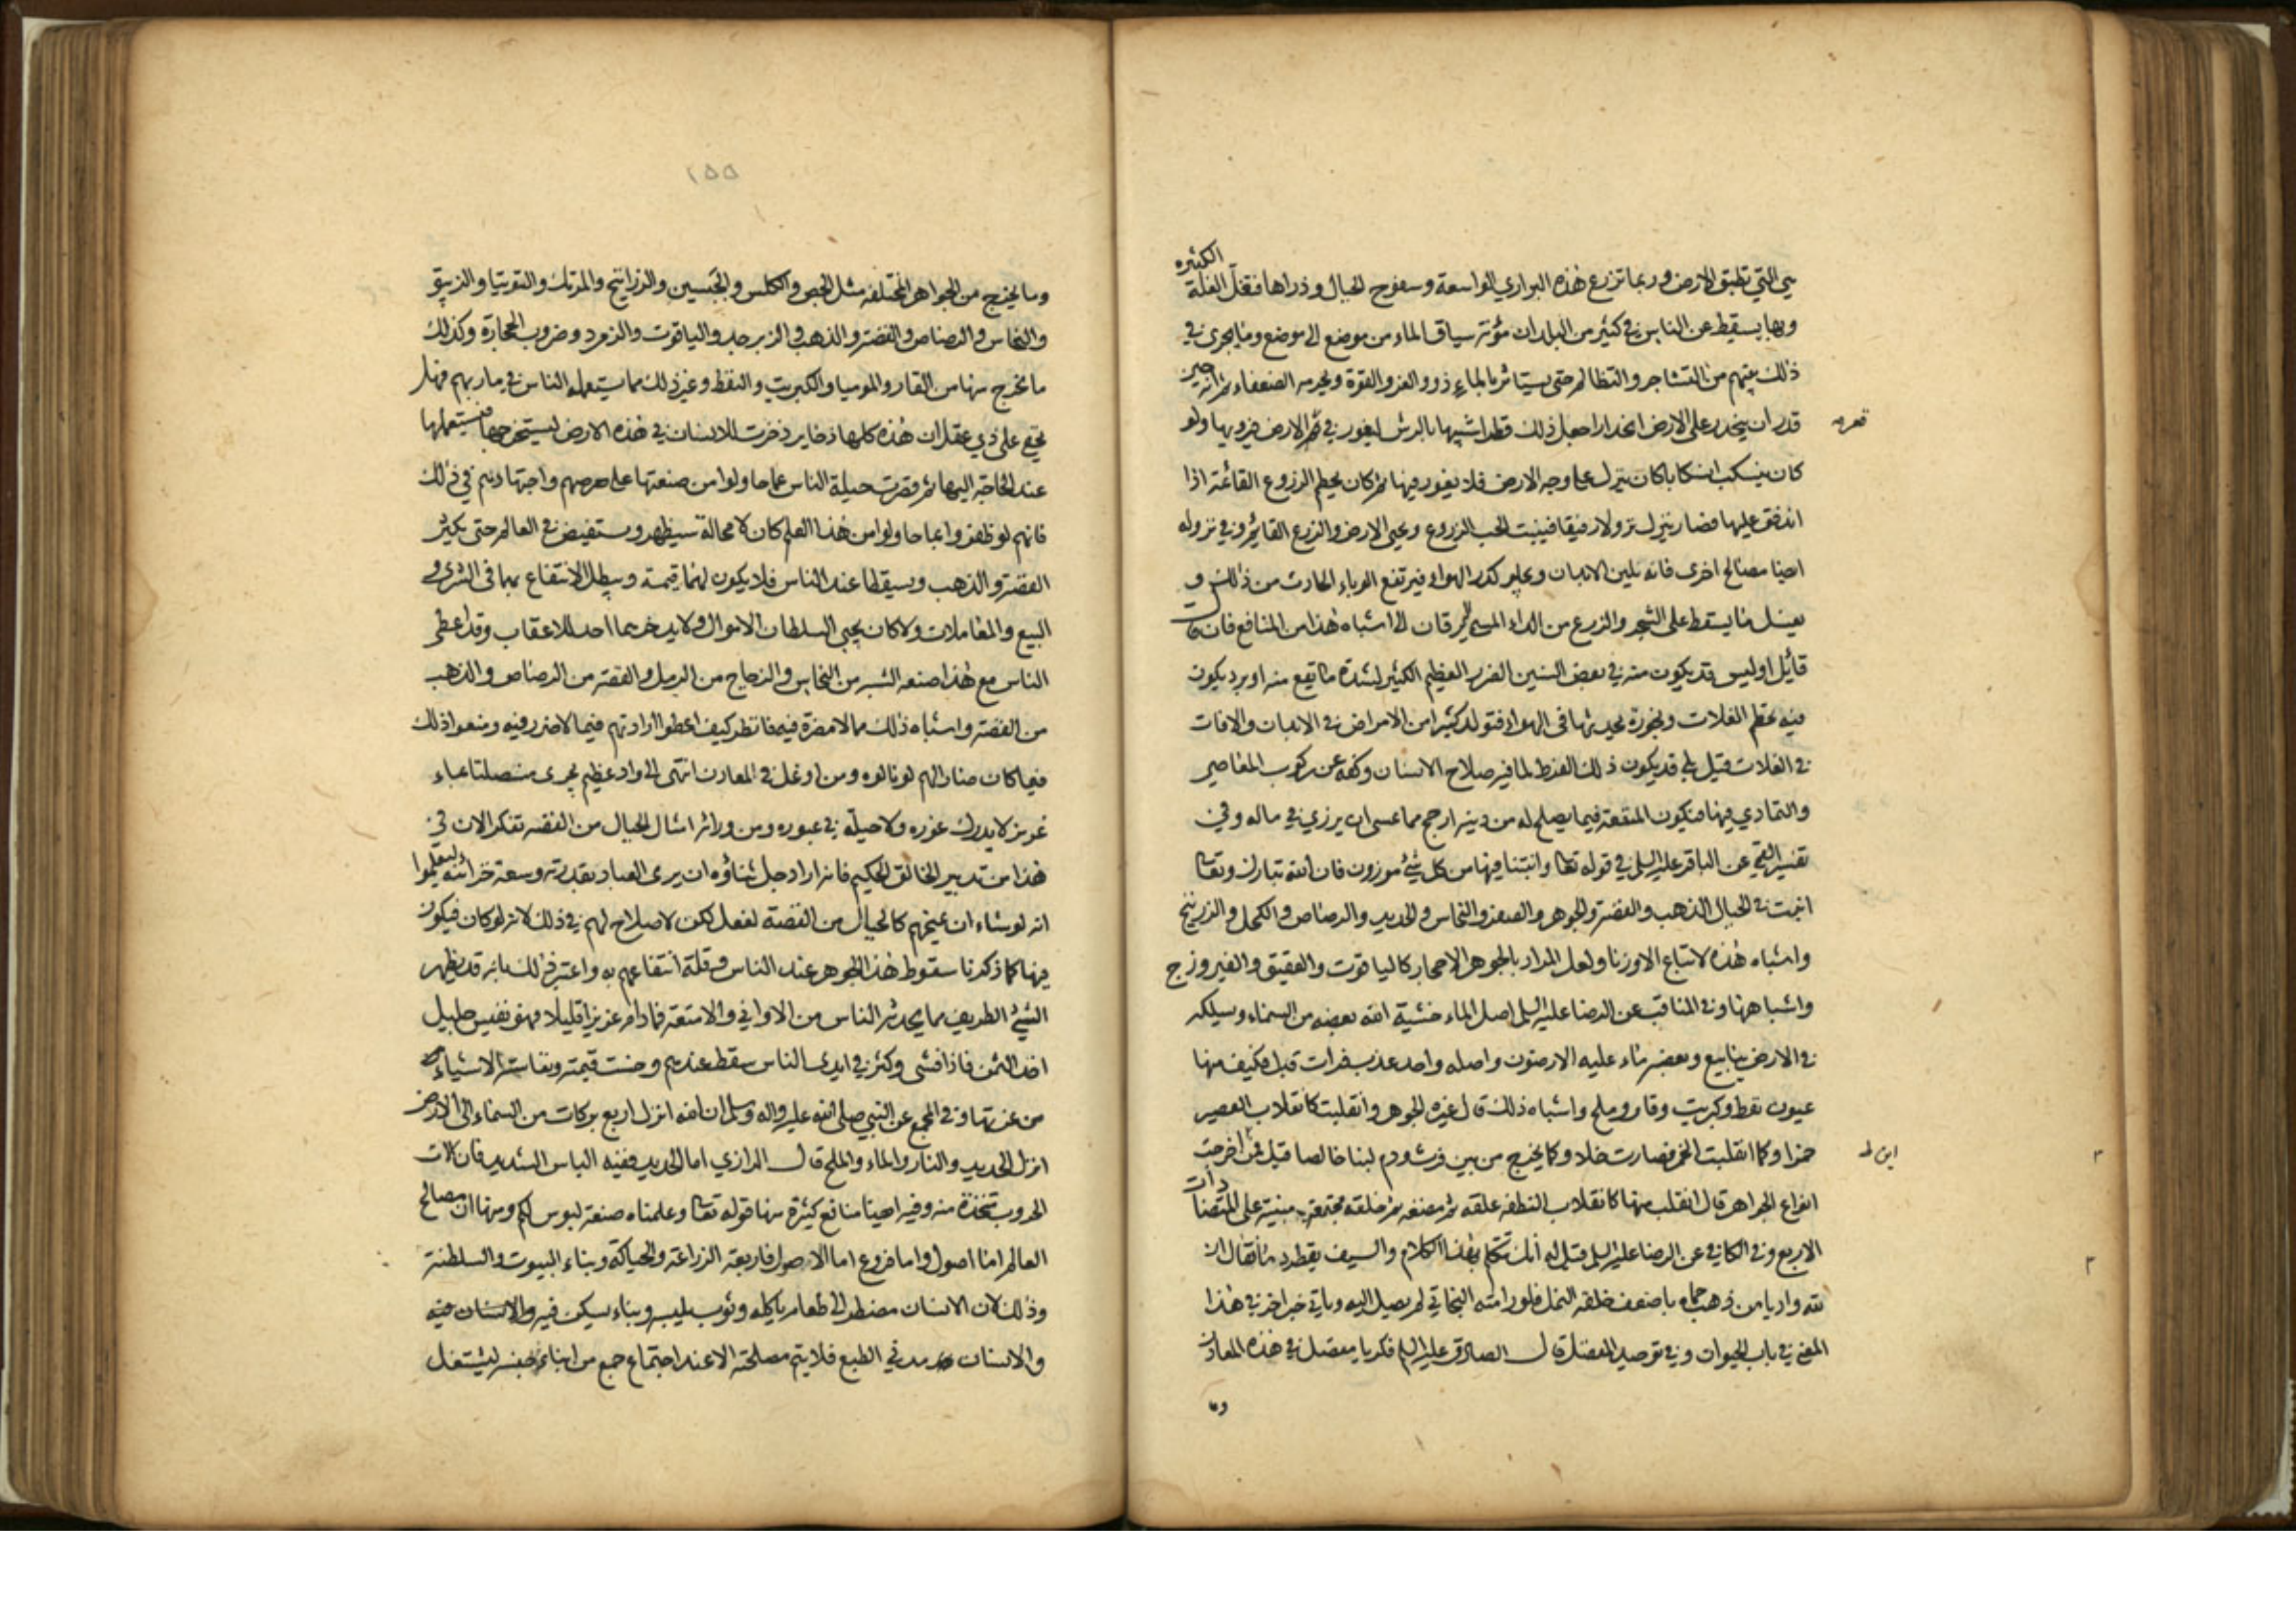 الكثيره
هي التي تطبق الارض وربما تزرع هذه البراري الواسعة وسفوح الجبال وذراها فتغل الغلة
وبها يسقط عن الناس في كثير من البلدان مؤنة سياق الماء من موضع الى موضع وما يجري في
ذلك بينهم من التشاجر والتظالم حتى يستاثر بالماء ذوو العز والقوة ويحرمه الضعفاء ثم انه حين
قدر ان ينحدر على الارض انحدارا جعل ذلك قطرا شبيها بالرش ليغور في قعر الارض فيرويها ولو
قعر
كان يسكب انسكابا كان ينزل على وجه الارض فلا يغور فيها ثم كان يحطم الزروع القائمة اذا
اندفق عليها فصار ينزل نزولا رفيقا فينبت الحب المزروع ويحيي الارض والزرع القائم وفي نزوله
ايضا مصالح اخرى فانه يلين الابدان ويجلو كدر الهواء فيرتفع الوباء الحادث من ذلك و
يغسل ما يسقط على الشجر والزرع من الداء المسمى اليرقان الى اشباه هذا من المنافع فان قال
قائل اوليس قد يكون منه في بعض السنين الضرر العظيم الكثير لشدة ما يقع منه او برد يكون
فيه تحطم الغلات وبخورة يحدثها في الهواء فتولد كثيرا من الامراض في الابدان والافات
في الغلات قيل بلى قد يكون ذلك الفرط لما فيه صلاح الانسان وكفه عن ركوب المعاصي
والتمادي فيها فيكون المنفعة فيما يصلح له من دينه ارجح مما عسى ان يرزي في ماله وفي
تفسير القمي عن الباقر عليه السلم في قوله تعا وانبتنا فيها من كل شئ موزون فان الله تبارك وتعا
انبت في الجبال الذهب والفضة والجوهر والصفر والنحاس والحديد والرصاص والكحل والزرنيخ
واشباه هذه لا تباع الا وزنا ولعل المراد بالجوهر الاحجار كالياقوت والعقيق والفيروزج
واشباهها وفي المناقب عن الرضا عليه السلم اصل الماء خشية الله بعضه من السماء وسيلكه
في الارض ينابيع وبعضه ماء عليه الارضون واصله واحد عذب فرات قيل فكيف منها
عيون نفط وكبريت وقار وملح واشباه ذلك قال غيره الجوهر وانقلبت كانقلاب العصير
خمرا وكما انقلبت الخمر فصارت خلا وكما يخرج من بين فرث ودم لبنا خالصا قيل فمن اين اخرجت
اين ظ
انواع الجواهر قال انقلب منها كانقلاب النطفه علقه ثم مضغه ثم خلقه مجتمعة مبنية على المتضادات
الاربع وفي الكافي عن الرضا عليه السلم قيل له انك تتكلم بهذا الكلام والسيف يقطر دما فقال ان
لله واديا من ذهب حماه باضعف خلقه النمل فلو رامته البخاتي لم يصل اليه وياتي خبر اخر في هذا
المعنى في باب الحيوان وفي توحيد المفضل قال الصادق عليه السلم فكر يا مفضل في هذه المعادن
وما
١٥٥
وما يخرج من الجواهر المختلفه مثل الجص والكلس والجبسين والزرانيخ والمرتك والتوتيا والزيبق
والنحاس والرصاص والفضة والذهب والزبرجد والياقوت والزمرد وضروب الحجارة وكذلك
ما يخرج منها من القار والموميا والكبريت والنفط وغير ذلك مما يستعمله الناس في ماربهم فهل
يخفى على ذي عقل ان هذه كلها ذخاير ذخرت للانسان في هذه الارض ليستخرجها فيستعملها
عند الحاجة اليها ثم قصرت حيلة الناس عما حاولوا من صنعتها على حرصهم واجتهادهم في ذلك
فانهم لو ظفروا بما حاولوا من هذا العلم كان لا محالة سيظهر ويستفيض في العالم حتى يكثر
الفضة والذهب ويسقطا عند الناس فلا يكون لهما قيمة ويبطل الانتفاع بهما في الشرى و
البيع والمعاملات ولا كان يجبي السلطان الاموال ولا يدخرهما احد للاعقاب وقد اعطي
الناس مع هذا صنعه الشبه من النحاس والزجاج من الرمل والفضة من الرصاص والذهب
من الفضة واشباه ذلك مما لا مضرة فيه فانظر كيف اعطوا ارادتهم فيما لا ضرر فيه ومنعوا ذلك
فيما كان ضارا لهم لو نالوه ومن اوغل في المعادن انتهى الى واد عظيم يجرى منصلتا بماء
غزير لا يدرك غوره ولا حيلة في عبوره ومن ورائه امثال الجبال من الفضه تفكر الان في
هذا من تدبير الخالق الحكيم فانه اراد جل ثناؤه ان يرى العباد بقدرته وسعة خزائنه ليعلموا
انه لو شاء ان يمنحهم كالجبال من الفضة لفعل لكن لا صلاح لهم في ذلك لانه لو كان فيكون
فيها كما ذكرنا سقوط هذا الجوهر عند الناس وقلة انتفاعهم به واعتبر ذلك بانه قد يظهر
الشئ الطريف مما يحدثه الناس من الاواني والامتعة فما دام عزيزا قليلا فهو نفيس جليل
اخذ الثمن فاذا فشى وكثر في ايدى الناس سقط عندهم وخست قيمته ونفاسة الاشياء
من عزتها وفي المجمع عن النبي صلى الله عليه واله وسلم ان الله انزل اربع بركات من السماء الى الارض
انزل الحديد والنار والماء والملح قال الرازي اما الحديد ففيه الباس الشديد فان الات
الحروب متخذة منه وفيه ايضا منافع كثيرة منها قوله تعا وعلمناه صنعة لبوس لكم ومنها ان مصالح
العالم اما اصول واما فروع اما الاصول فاربعة الزراعة والحياكة وبناء البيوت والسلطنة
وذلك لان الانسان مضطر الى طعام ياكله وثوب يلبسه وبناء يسكن فيه والانسان
والانسان مدني الطبع فلا يتم مصلحته الا عند اجتماع جمع من ابناء جنسه ليشتغل